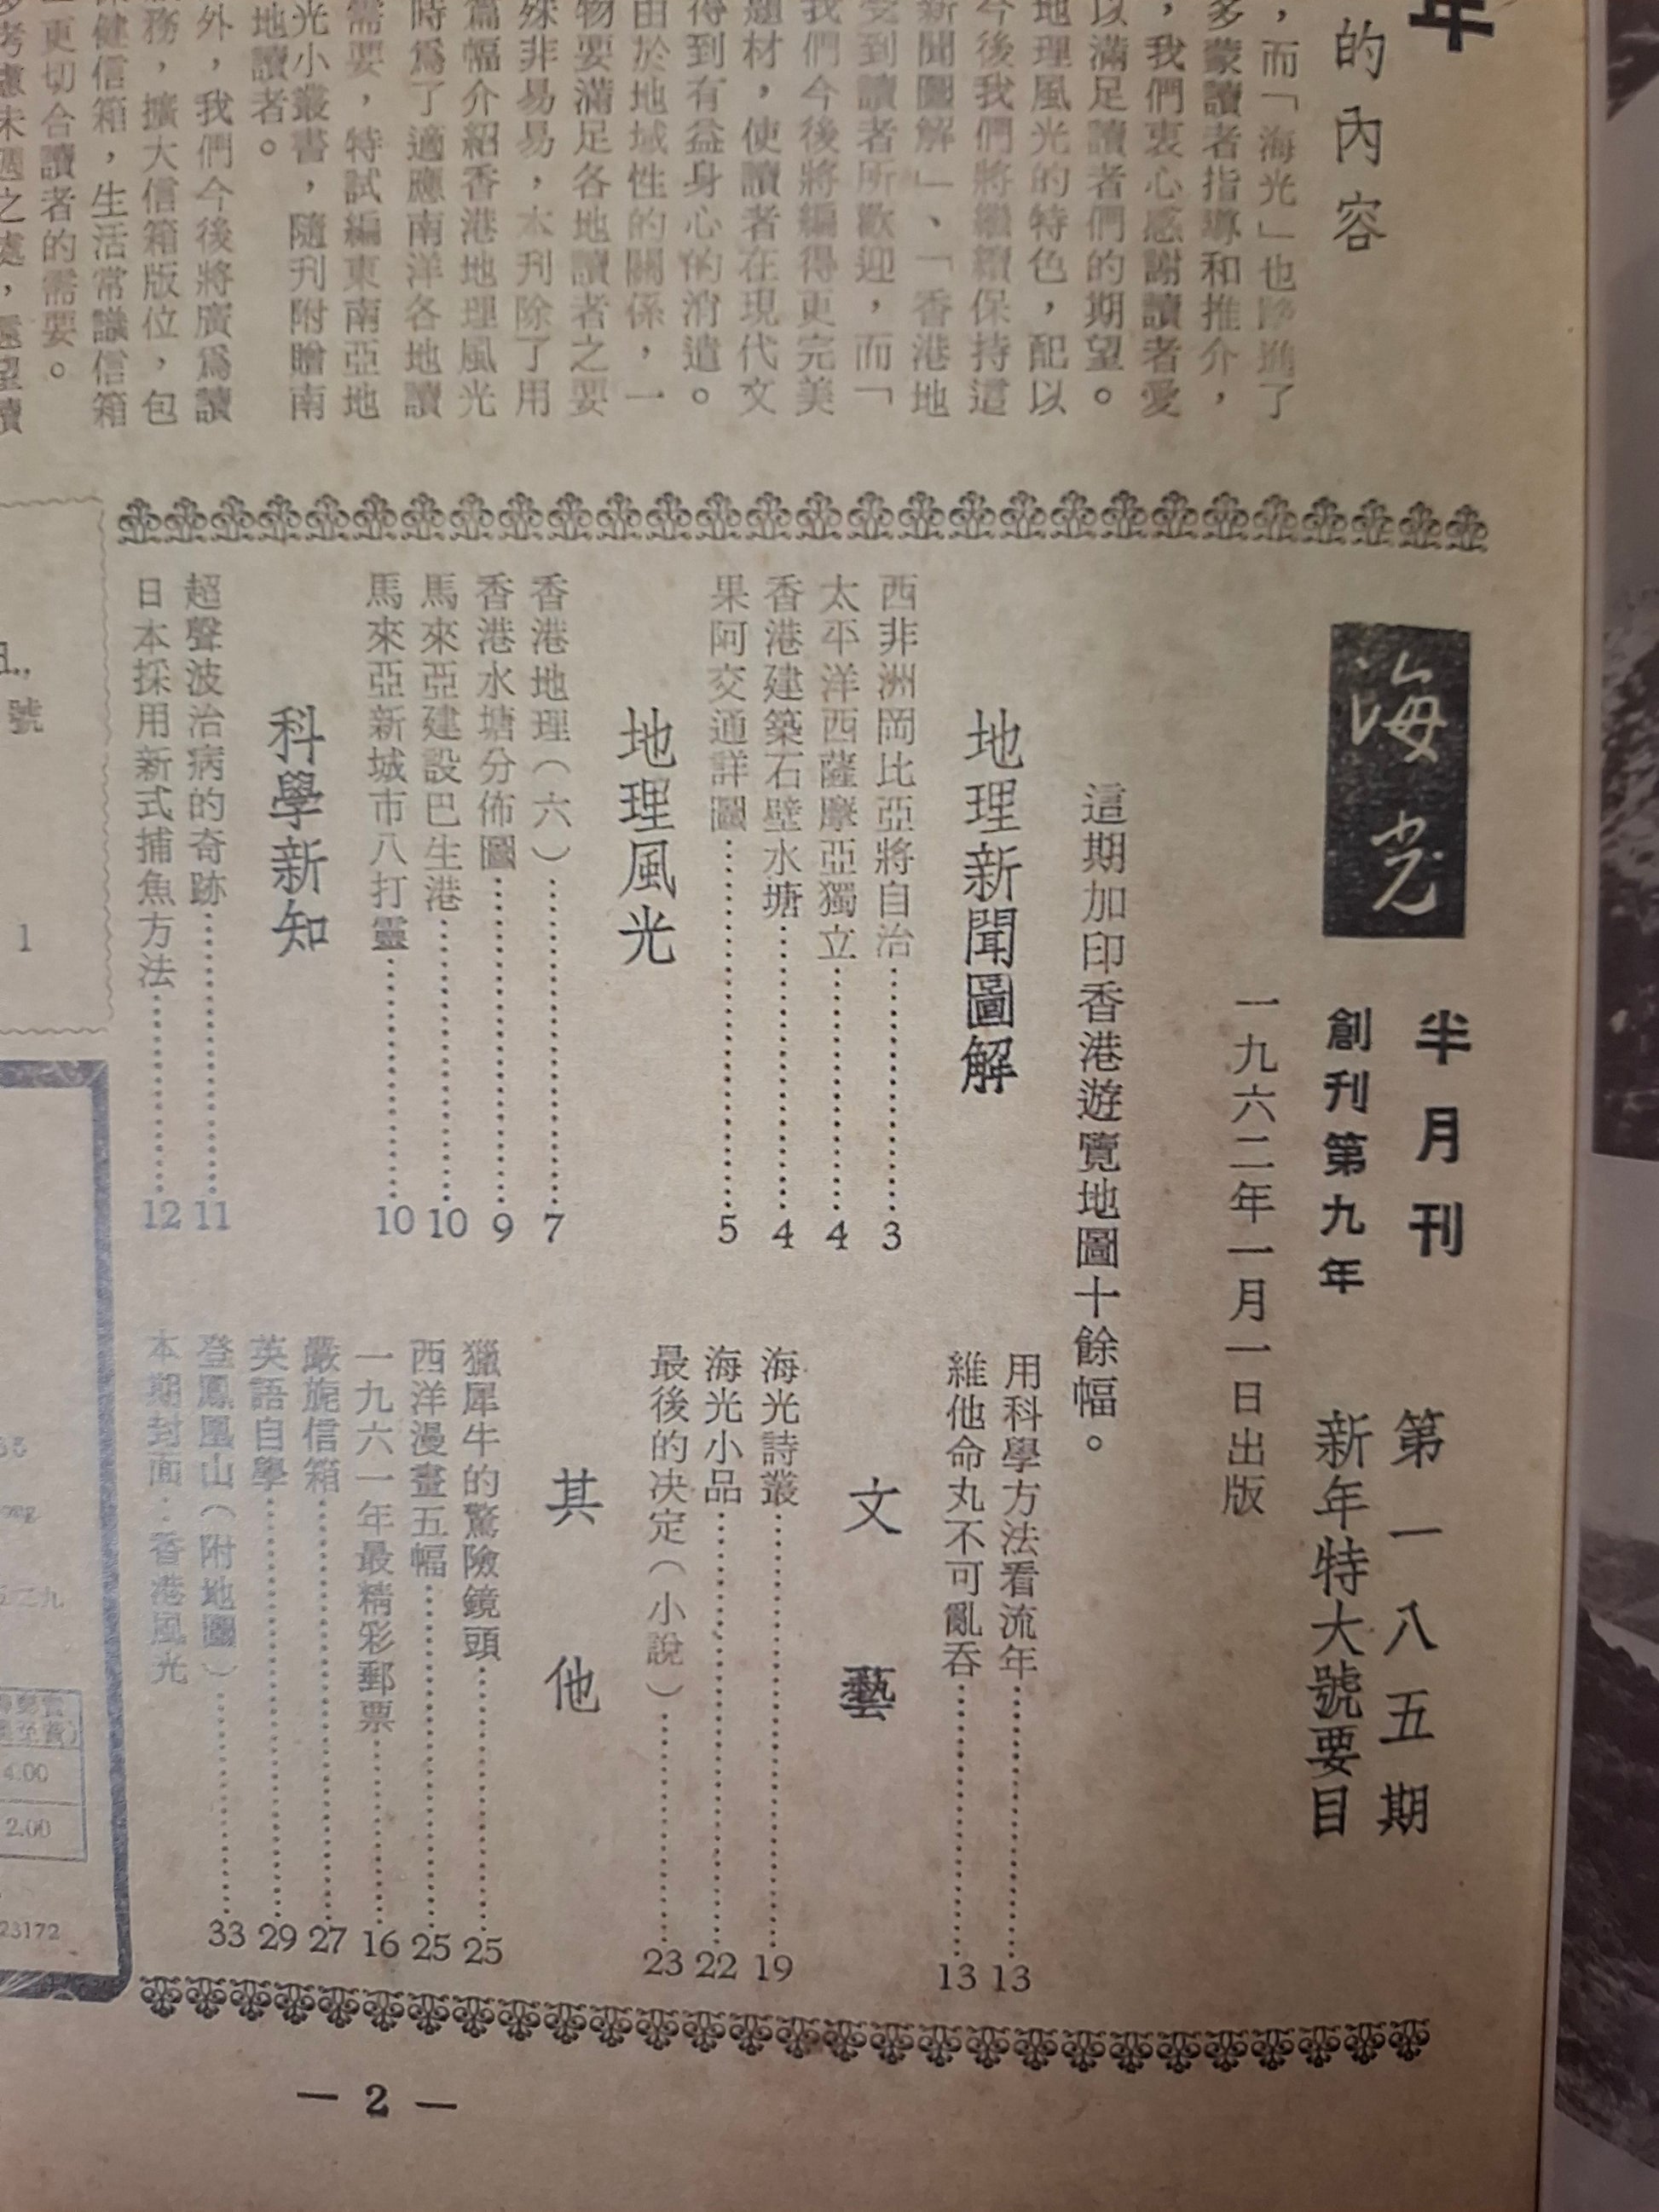 年
的內容
，而「海光」也進了
多蒙讀者指導和推介，
，我們衷心感謝讀者愛
以滿足讀者們的期望。
地理風光的特色，配以
今後我們將繼續保持這
新聞圖解」、「香港地
受到讀者所歡迎，而「
我們今後將編得更完美
題材，使讀者在現代文
得到有益身心的消遣。
由於地域性的關係，一
物要滿足各地讀者之要
殊非易易，本刋除了用
篇幅介紹香港地理風光
時爲了適應南洋各地讀
需要，特試編東南亞地
光小叢書，隨刋附贈南
地讀者。
外，我們今後將廣爲讀
務，擴大信箱版位，包
保健信箱，生活常識信箱
更切合讀者的需要。
多考慮未週之處，還望讀
海光
半月刋
創刋第九年
第一八五期
新年特大號要目
一九六二年一月一日出版
這期加印香港遊覽地圖十餘幅。
地理新聞圖解
西非洲岡比亞將自治……3
太平洋西薩摩亞獨立……4
香港建築石壁水塘……4
果阿交通詳圖……5
地理風光
香港地理（六）……7
香港水塘分佈圖……9
馬來亞建設巴生港……10
馬來亞新城市八打靈……10
科學新知
超聲波治病的奇跡……11
日本採用新式捕魚方法……12
用科學方法看流年……13
維他命丸不可亂吞……13
文藝
海光詩叢……19
海光小品……22
最後的決定（小說）……23
其他
獵犀牛的驚險鏡頭……25
西洋漫畫五幅……25
一九六一年最精彩郵票……16
嚴旎信箱……27
英語自學……29
登鳳凰山（附地圖）……33
本期封面：香港風光
號
1
二九
郵費
4.00
2.00
23172
— 2 —